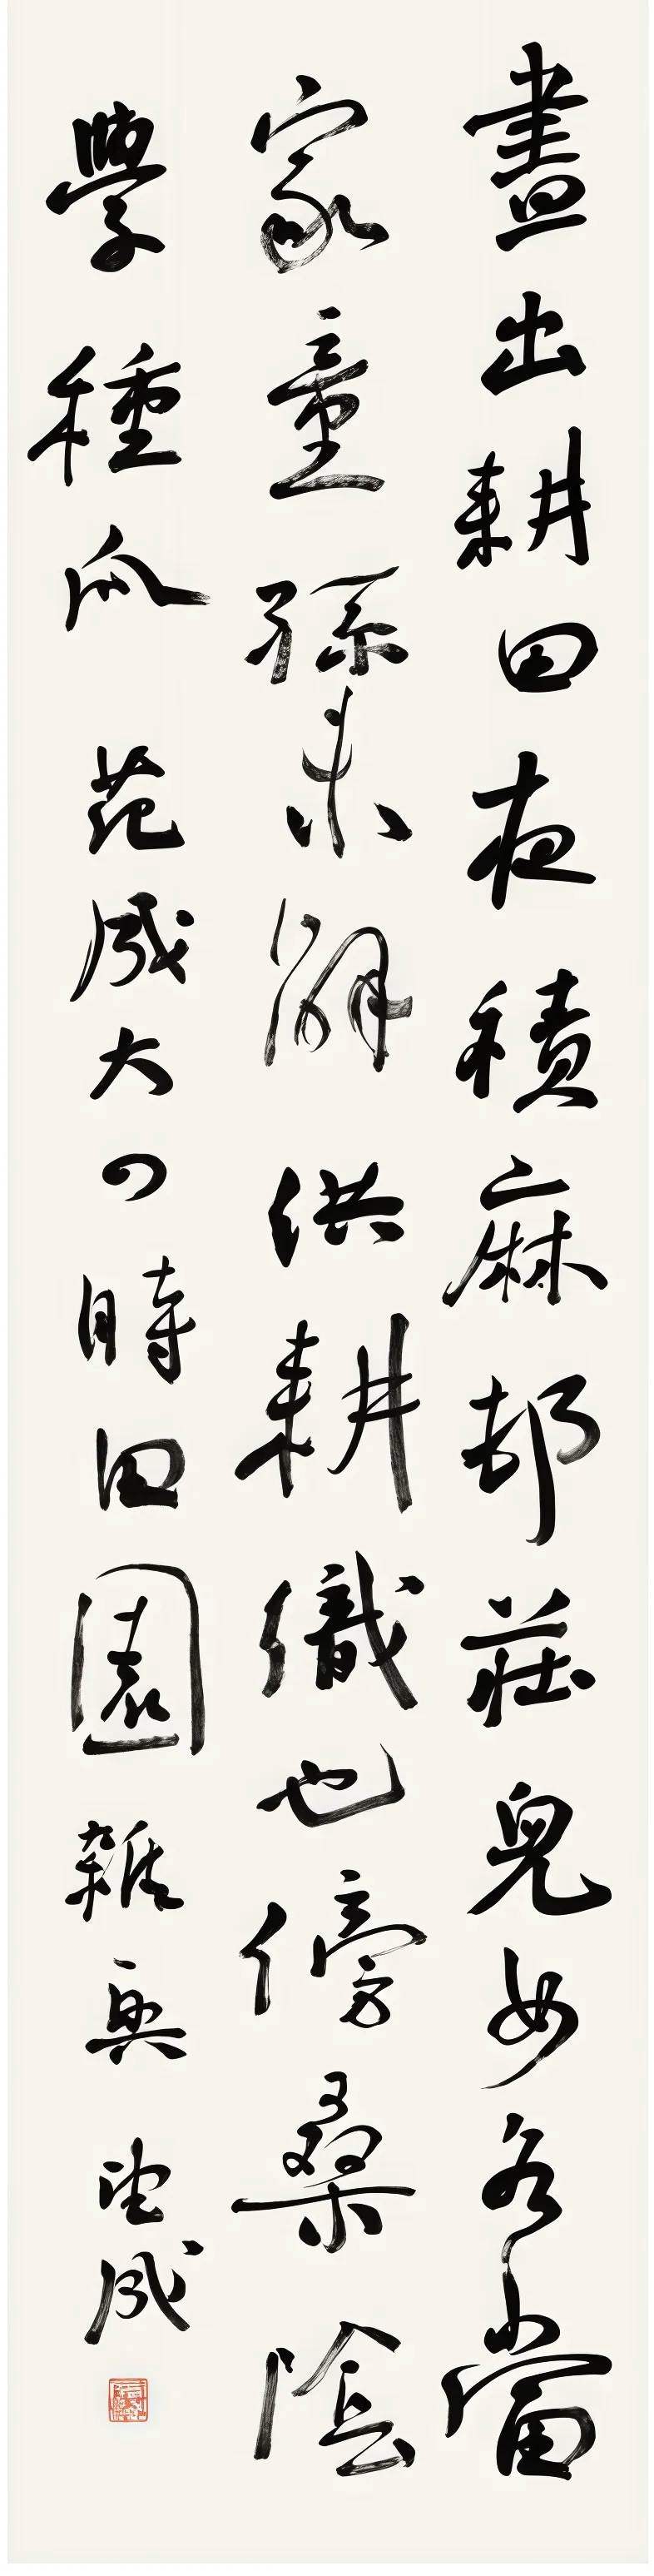 晝出耕田夜積麻邨莊兒女各當
家童孫未解供耕織也傍桑陰
學種瓜 范成大四時田園雜興 成